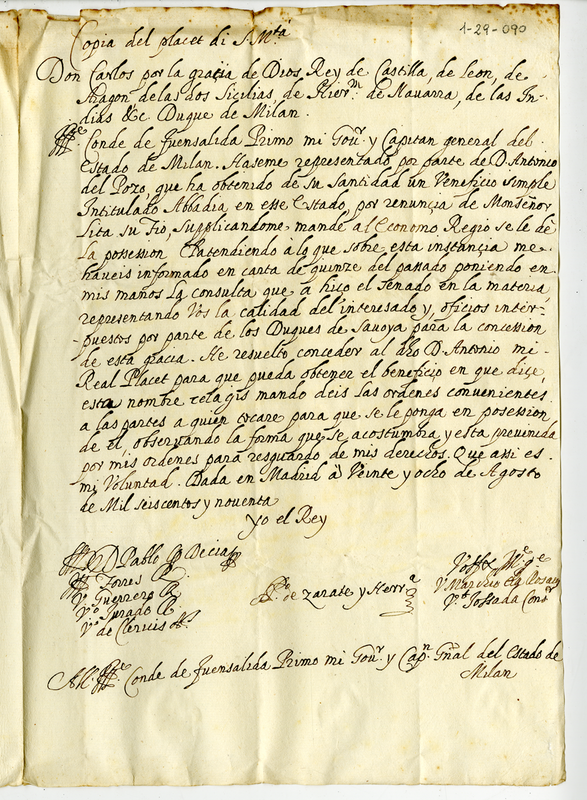 1-29-090
Copia del placet di S. Mta
Don Carlos por la gratia de Dios, Rey de Castilla, de Leon, de
Aragon, de las dos Sicilias, de Hierm de Navarra, de las In-
dias &c Duque de Milan.
Conde de fuensalida Primo mi Gour y Capitan general del
Estado de Milan. Haseme representado por parte de D. Antonio
del Pozo, que ha obtenido de su Santidad un Veneficio simple
Intitulado Abbadia en esse Estado, por renunçia de Monseñor
Sita su Tio, supplicandome mande al Economo Regio se le dè
La possession Patendiendo à lo que sobre esta instançia me
haveis informado en carta de quinze del passado poniendo en
mis manos La consulta que à hiço el Senado en la materia
representando Vos la calidad del interesado y, ofiçios inter-
puestos por parte de los Duques de Sauoya para la concession
de esta gracia. He resuelto conceder al dho D. Antonio mi
Real Placet para que pueda obtener el beneficio en que diçe
esta nombre mando deis las ordenes convenientes
a las partes a quien tocare para que se le ponga en posession
de el, observando la forma que se acostumbra y esta preuenida
por mis ordenes para resguardo de mis derechos. Que assi es
mi Voluntad. Dada en Madrid à Veinte y ocho de Agosto
de Mil seiscentos y noventa
yo el Rey
D Pablo Decia
Torres
Vo Guerrero
Vo Jurado
Vo de Clericis
de Zarate y Herra
Vo Marcus
Vo Jossada Consr
Al Conde de fuensalida Primo mi Gour y Capn Gñal del Estado de
Milan